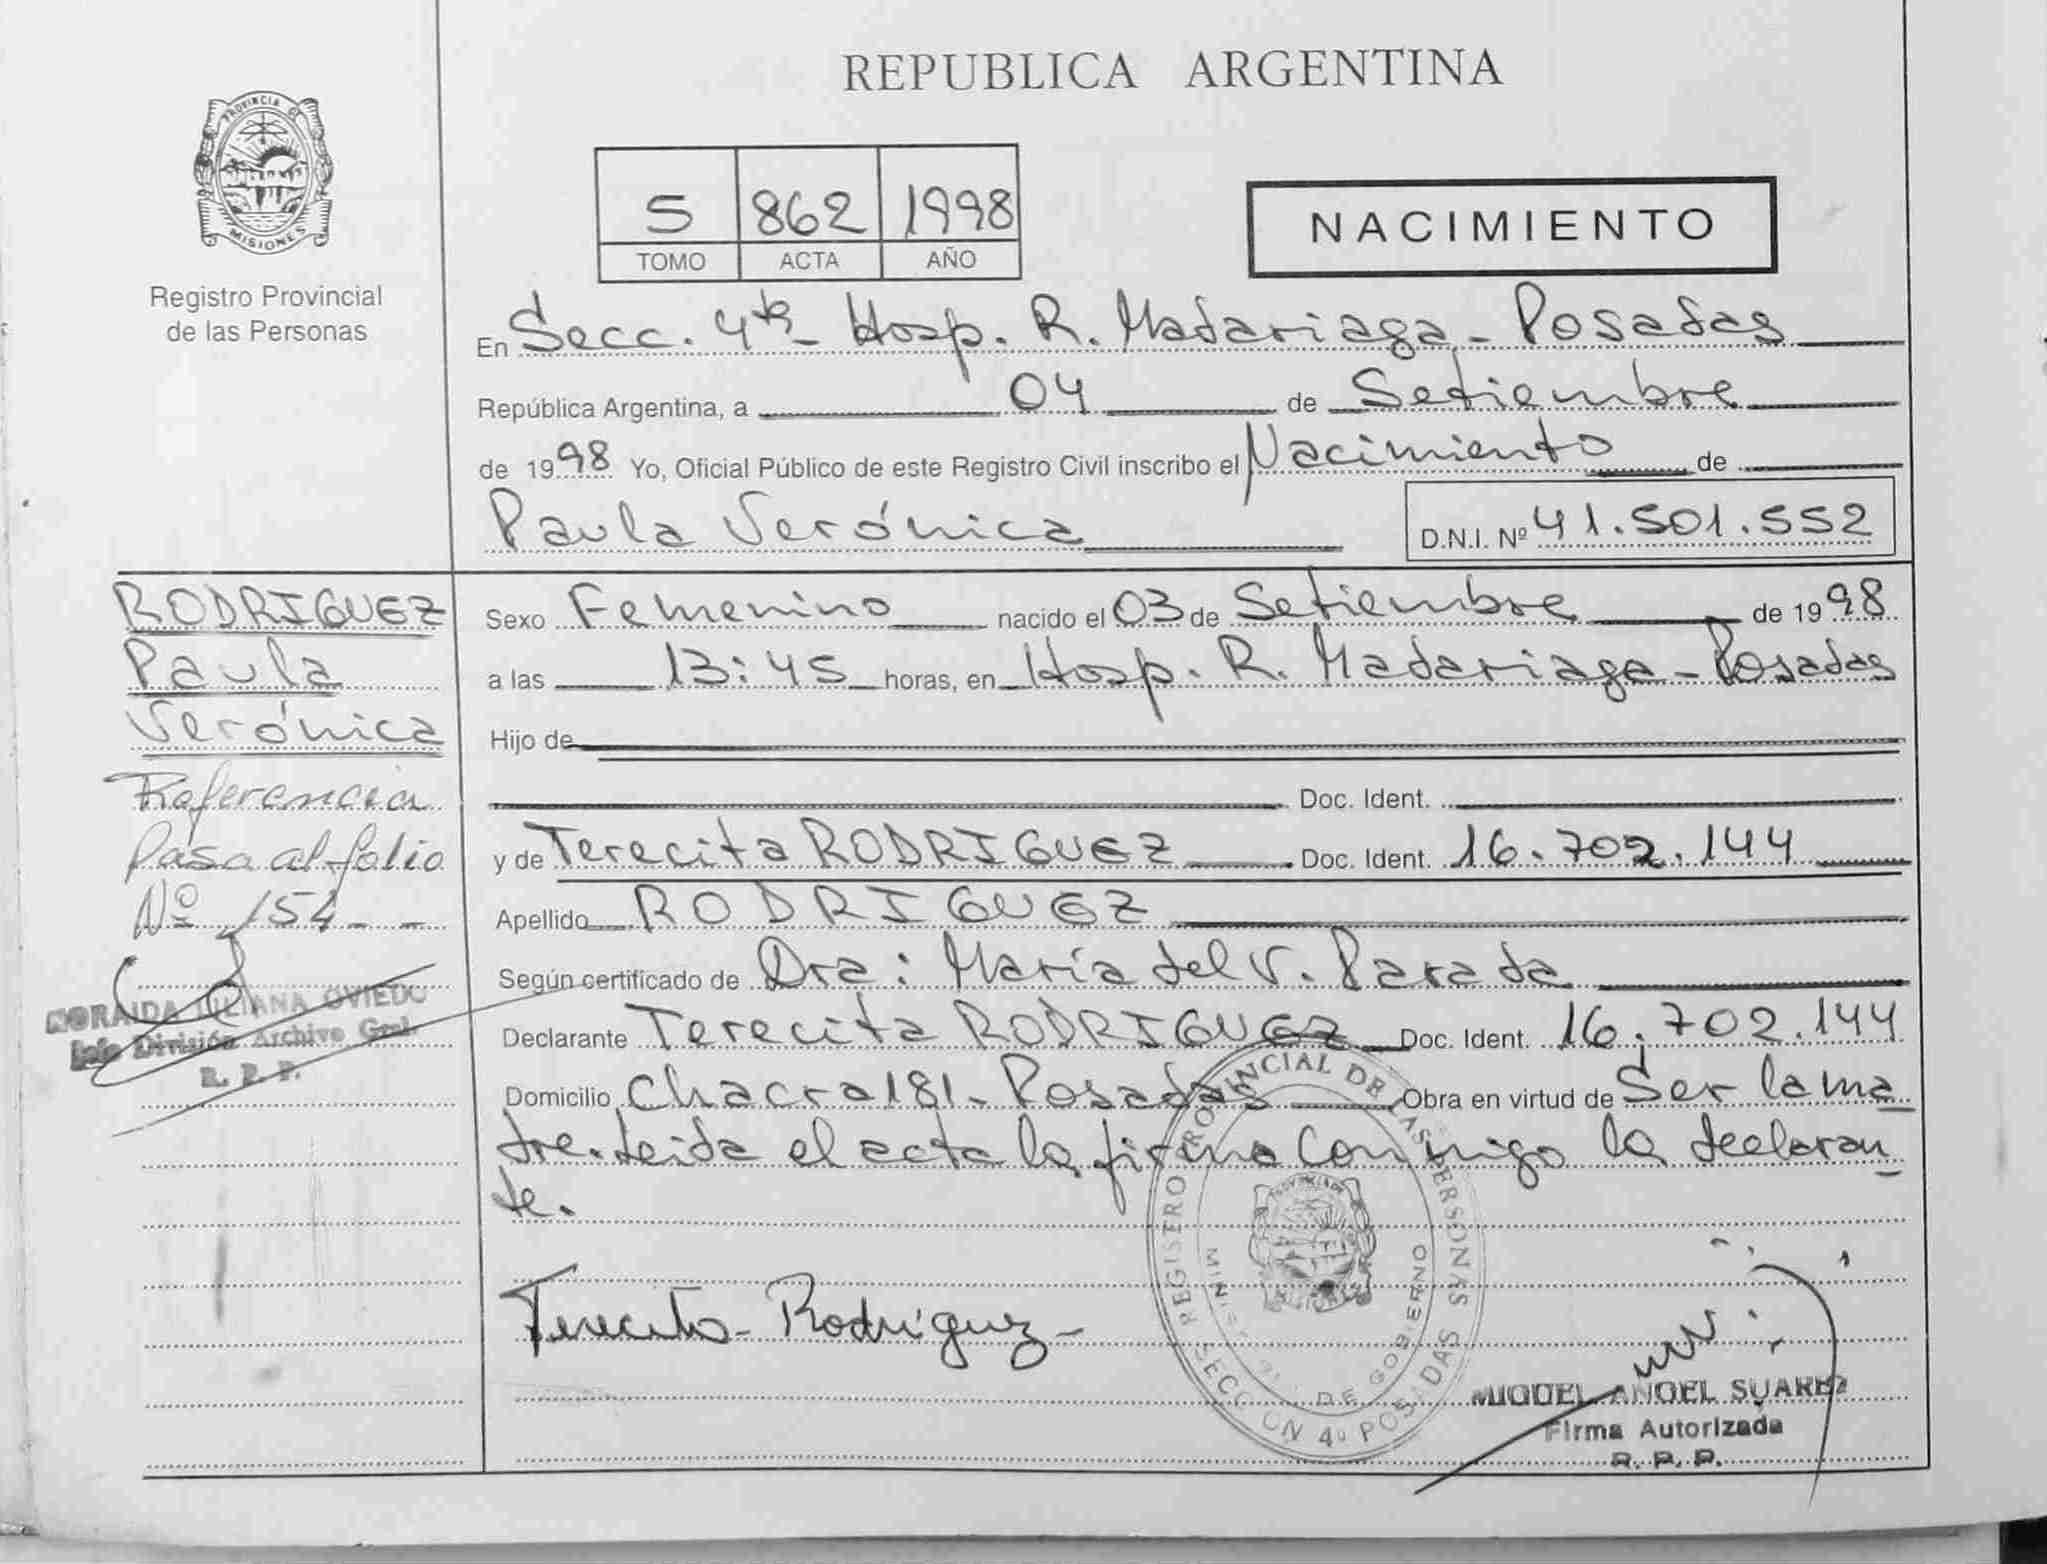 REPUBLICA ARGENTINA
PROVINCIA DE
MISIONES
Registro Provincial
de las Personas
5 862 1998
TOMO ACTA AÑO
NACIMIENTO
En Secc. 4ta Hosp. R. Madariaga - Posadas
República Argentina, a 04 de Setiembre
de 1998 Yo, Oficial Público de este Registro Civil inscribo el Nacimiento de
Paula Verónica D.N.I. Nº 41.501.552
RODRIGUEZ
Paula
Verónica
Referencia
Pasa al folio
Nº 154 - -
NORAIDA LILIANA OVIEDO
Jefe División Archivo Gral.
R. P. P.
Sexo Femenino nacido el 03 de Setiembre de 1998
a las 13:45 horas, en Hosp. R. Madariaga - Posadas
Hijo de
Doc. Ident.
y de Terecita RODRIGUEZ Doc. Ident. 16.702.144
Apellido RODRIGUEZ
Según certificado de Dra: María del V. Parada
Declarante Terecita RODRIGUEZ Doc. Ident. 16.702.144
Domicilio Chacra 181 - Posadas Obra en virtud de Ser la ma
dre. Leida el acta la firma conmigo la declaran
te.
Terecita Rodriguez
REGISTRO PROVINCIAL DE LAS PERSONAS
DE GOBIERNO
SECCION 4º POSADAS
MIGUEL ANGEL SUAREZ
Firma Autorizada
R. P. P.